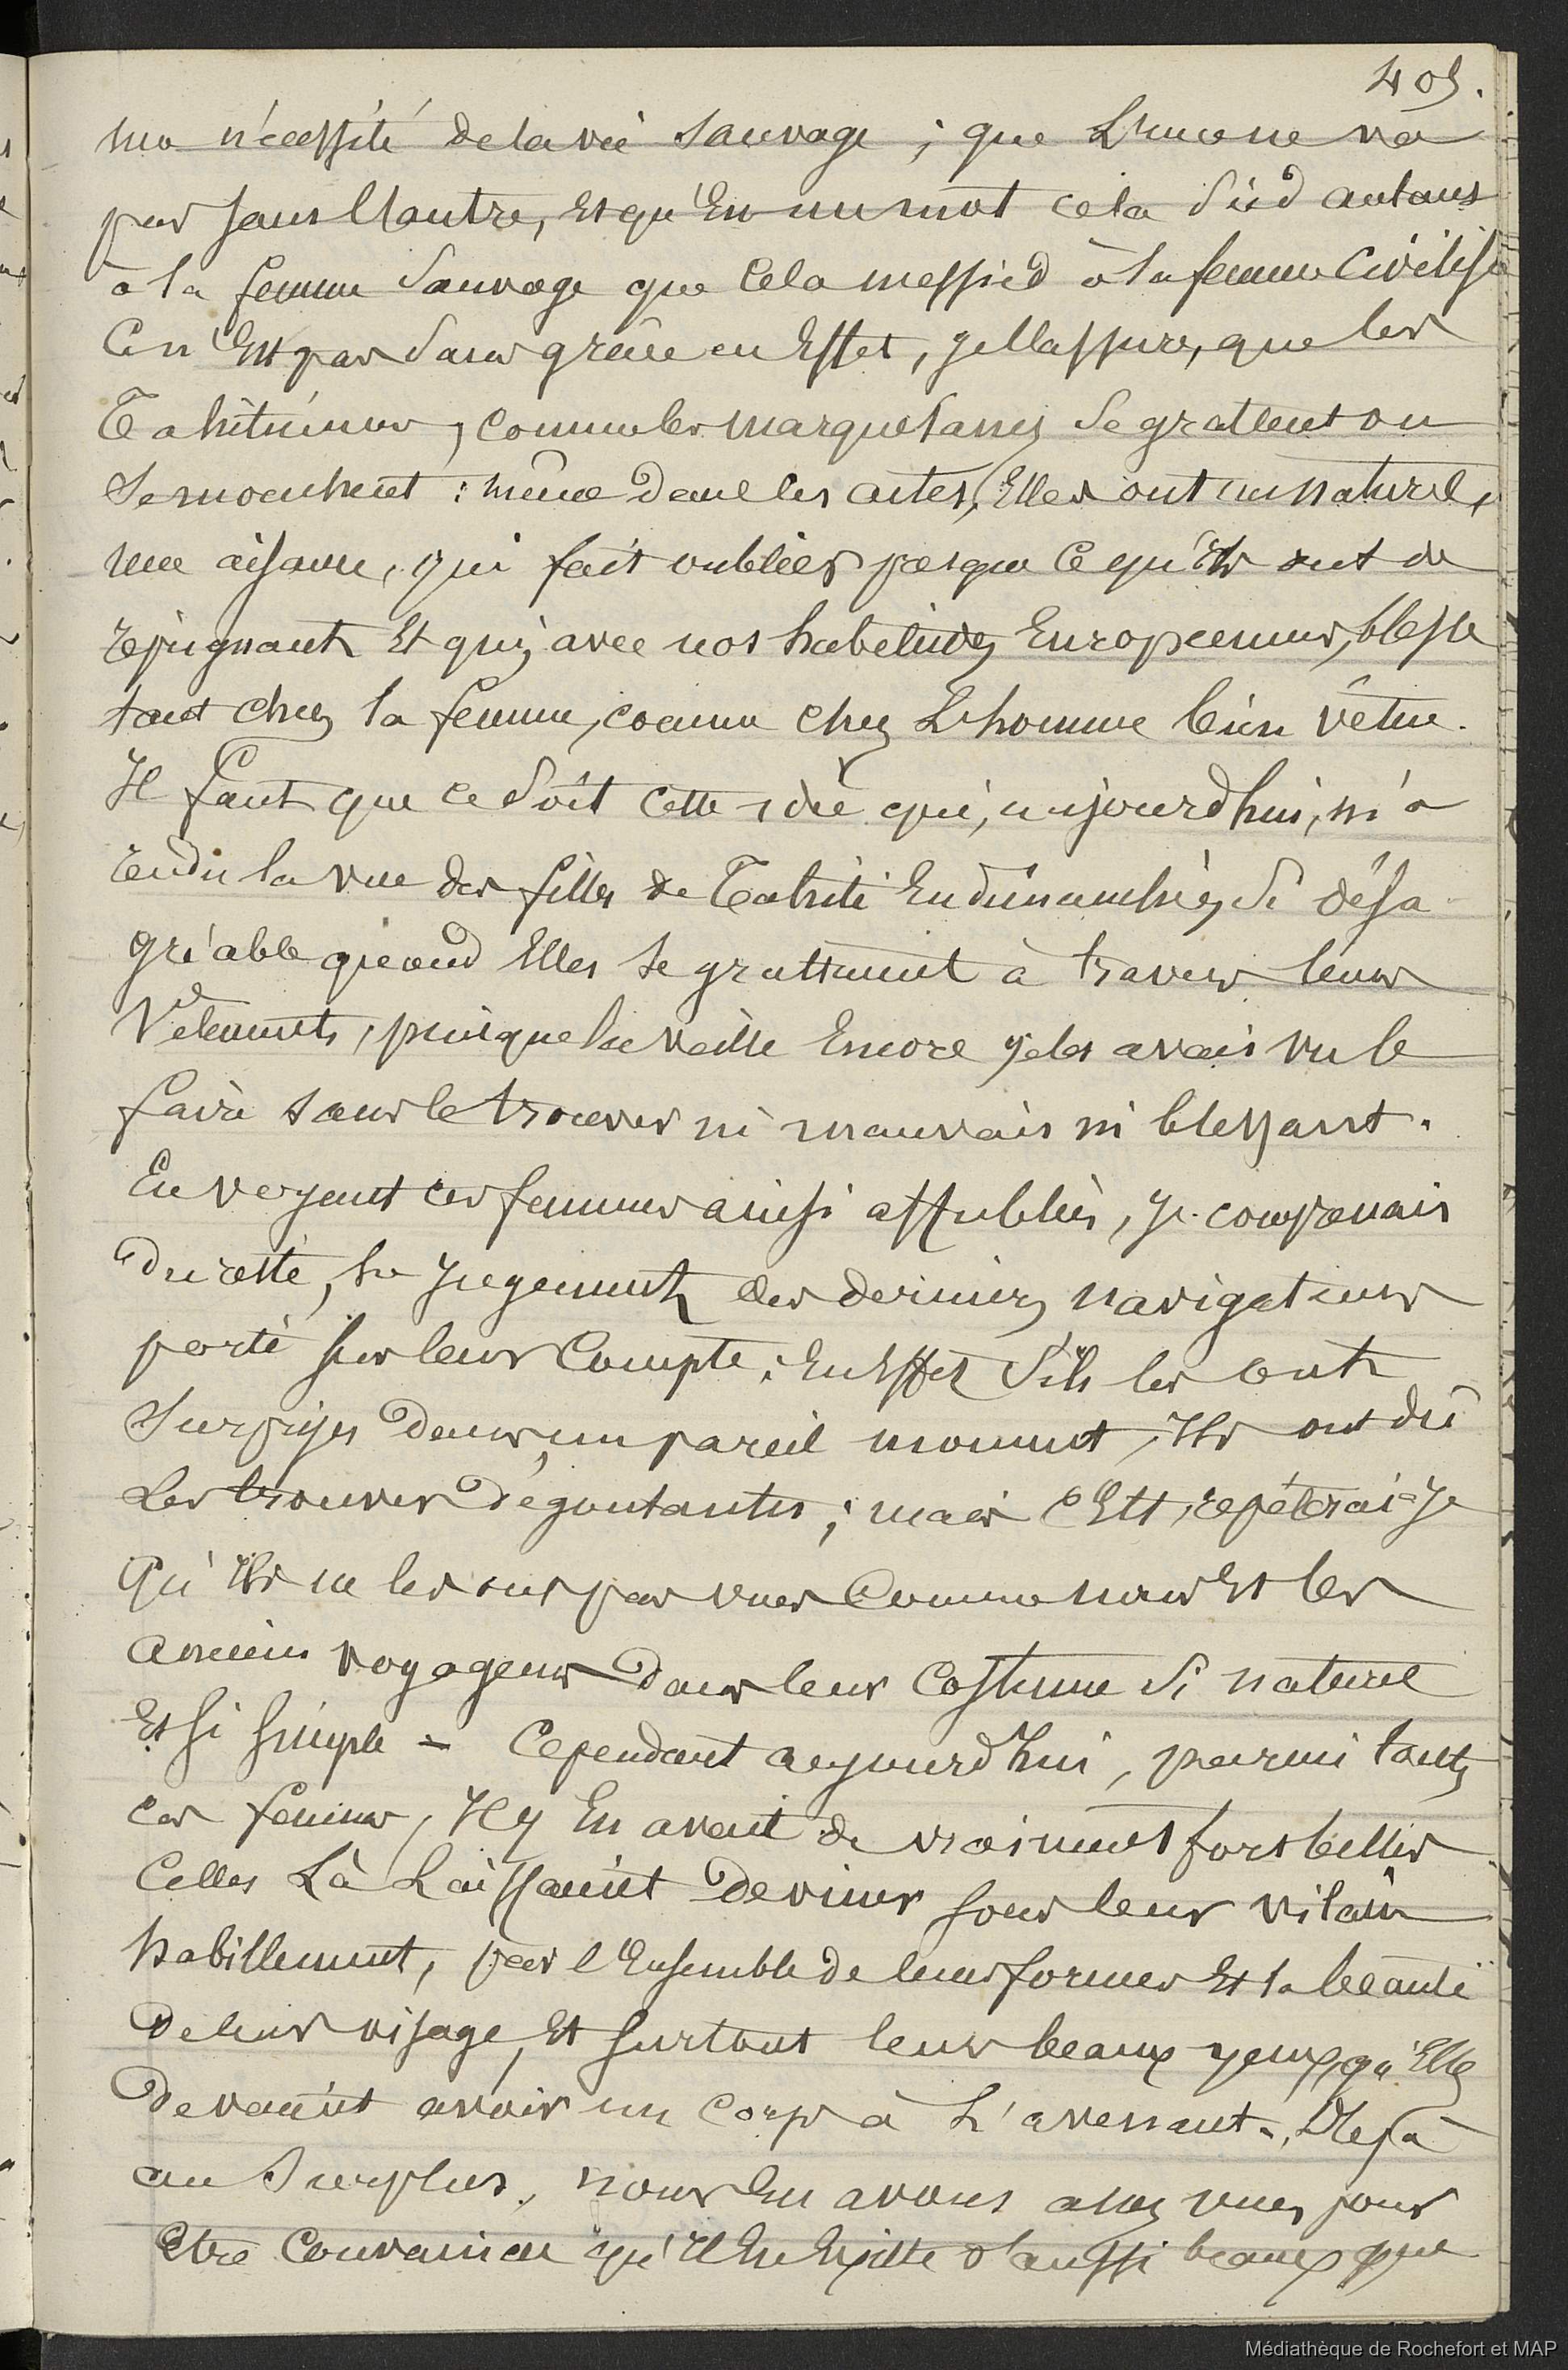 405.
une nécessité de la vie sauvage ; que L'une ne va
pas sans L'autre, et qu'En un mot cela sied autant
à la femme sauvage que cela messied à la femme civilisée
Ce n'Est pas sans grâce en Effet, je l'assure, que les
Tahitiennes, comme les marquesannes se grattent ou
se mouchent : même dans les actes, Elles ont un naturel,
une aisance, qui fait oublier presque ce qu'Ils ont de
répugnant Et qui, avec nos habitudes Européennes, blesse
tant chez la femme, comme chez L'homme bien vêtu.
Il faut que ce soit cette idée qui, aujourd'hui, m'a
rendu la vue des filles de Tahiti Endimanchées si désa
gréable quand Elles se grattaient à travers leurs
Vêtements, puisque la veille Encore je les avais vu le
faire sans le trouver ni mauvais ni blessant.
En voyant ces femmes ainsi affublées, je comprenais
du reste, le jugement des derniers navigateurs
porté sur leur Compte ; En Effet s'ils les ont
surprises dans un pareil moment, Ils ont dû
Les trouver dégoutantes ; mais c'Est, répéterai-je
qu'Ils ne les ont pas vues Comme nous Et les
anciens voyageurs dans leur Costume si naturel
Et si simple - Cependant aujourd'hui, parmi toutes
ces femmes, Il y En avait de vraiment fort belles
Celles Là Laissaient deviner sous leur vilain
habillement, par l'Ensemble de leurs formes Et la beauté
de leur visage, Et surtout leurs beaux yeux, qu'Elles
devaient avoir un corps à L'avenant. Déjà
au surplus, nous En avons assez vues, pour
Etre Convaincu qu'Il En Existe d'aussi beaux que
Médiathèque de Rochefort et MAP